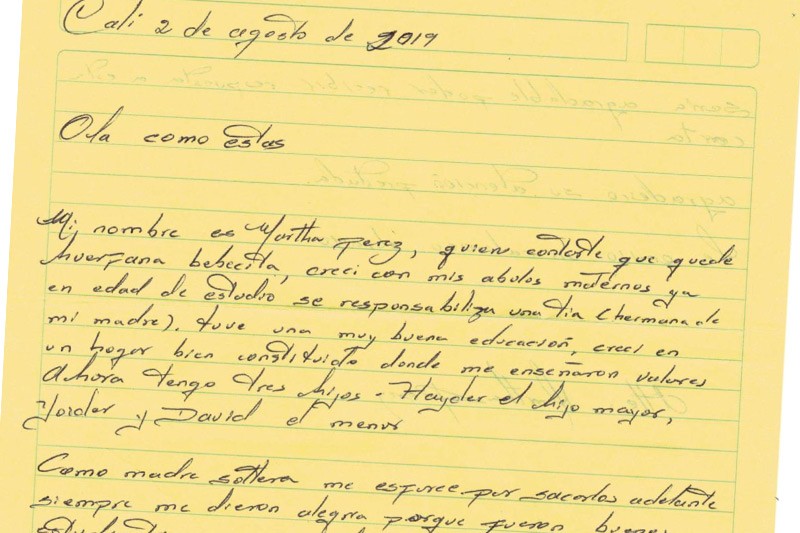 Cali 2 de agosto de 2019
Ola como estas
Mi nombre es Martha perez, quiero contarte que quede
huerfana bebecita, creci con mis abulos maternos ya
en edad de estudio se responsabiliza una tia (hermana de
mi madre). tuve una muy buena educacion, creci en
un hogar bien constituido donde me enseñaron valores
Ahora tengo tres hijos - Hayder el hijo mayor,
Yoider y David el menor
Como madre soltera me esforce por sacarlos adelante
siempre me dieron alegria porque fueron buenos